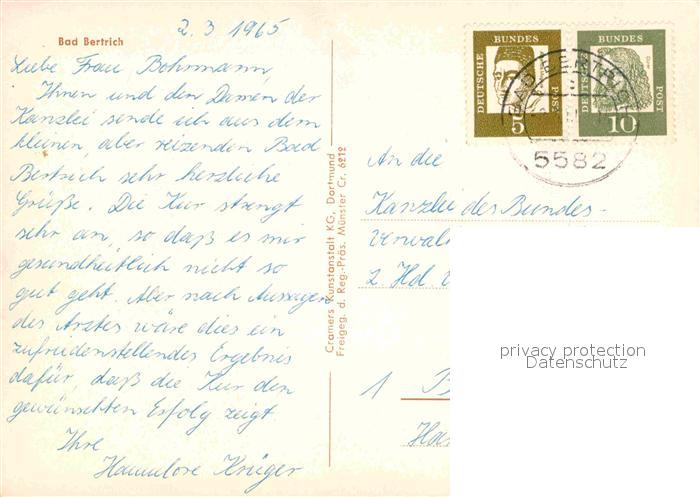 2.3 1965
Bad Bertrich
Liebe Frau Bohrmann,
Ihnen und den Damen der
Kanzlei sende ich aus dem
kleinen, aber reizenden Bad
Bertrich sehr herzliche
Grüße. Die Kur strengt
sehr an, so daß es mir
gesundheitlich nicht so
gut geht. Aber nach Aussagen
des Arztes wäre dies ein
zufriedenstellendes Ergebnis
dafür, daß die Kur den
gewünschten Erfolg zeigt.
Ihre
Hannelore Krüger
Cramers Kunstanstalt KG, Dortmund
Freigeg. d. Reg.-Präs. Münster Cr. 6212
DEUTSCHE
BUNDES
POST
5
DEUTSCHE
BUNDES
POST
10
BAD BERTRICH
5582
An die
Kanzlei des Bundes-
verwal
z. Hd.
1 B
Ha
privacy protection
Datenschutz